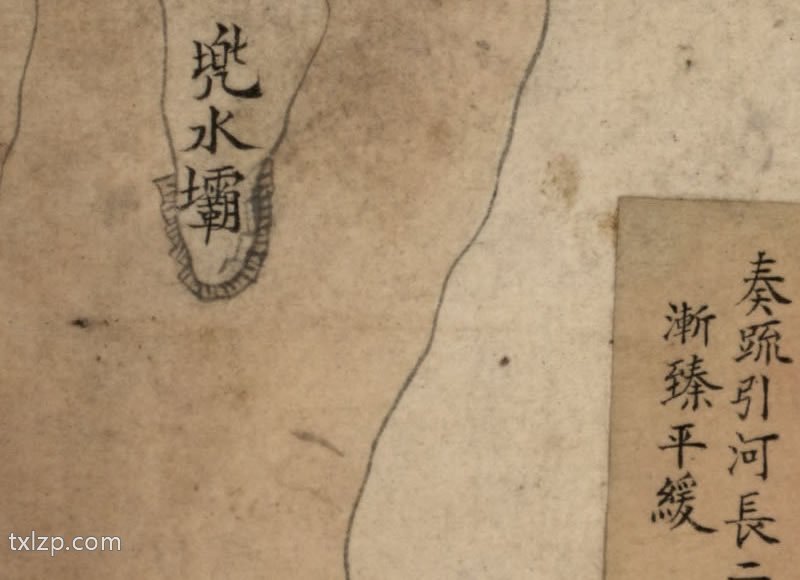 奏疏引河長二
漸臻平緩
兜水壩
txlzp.com